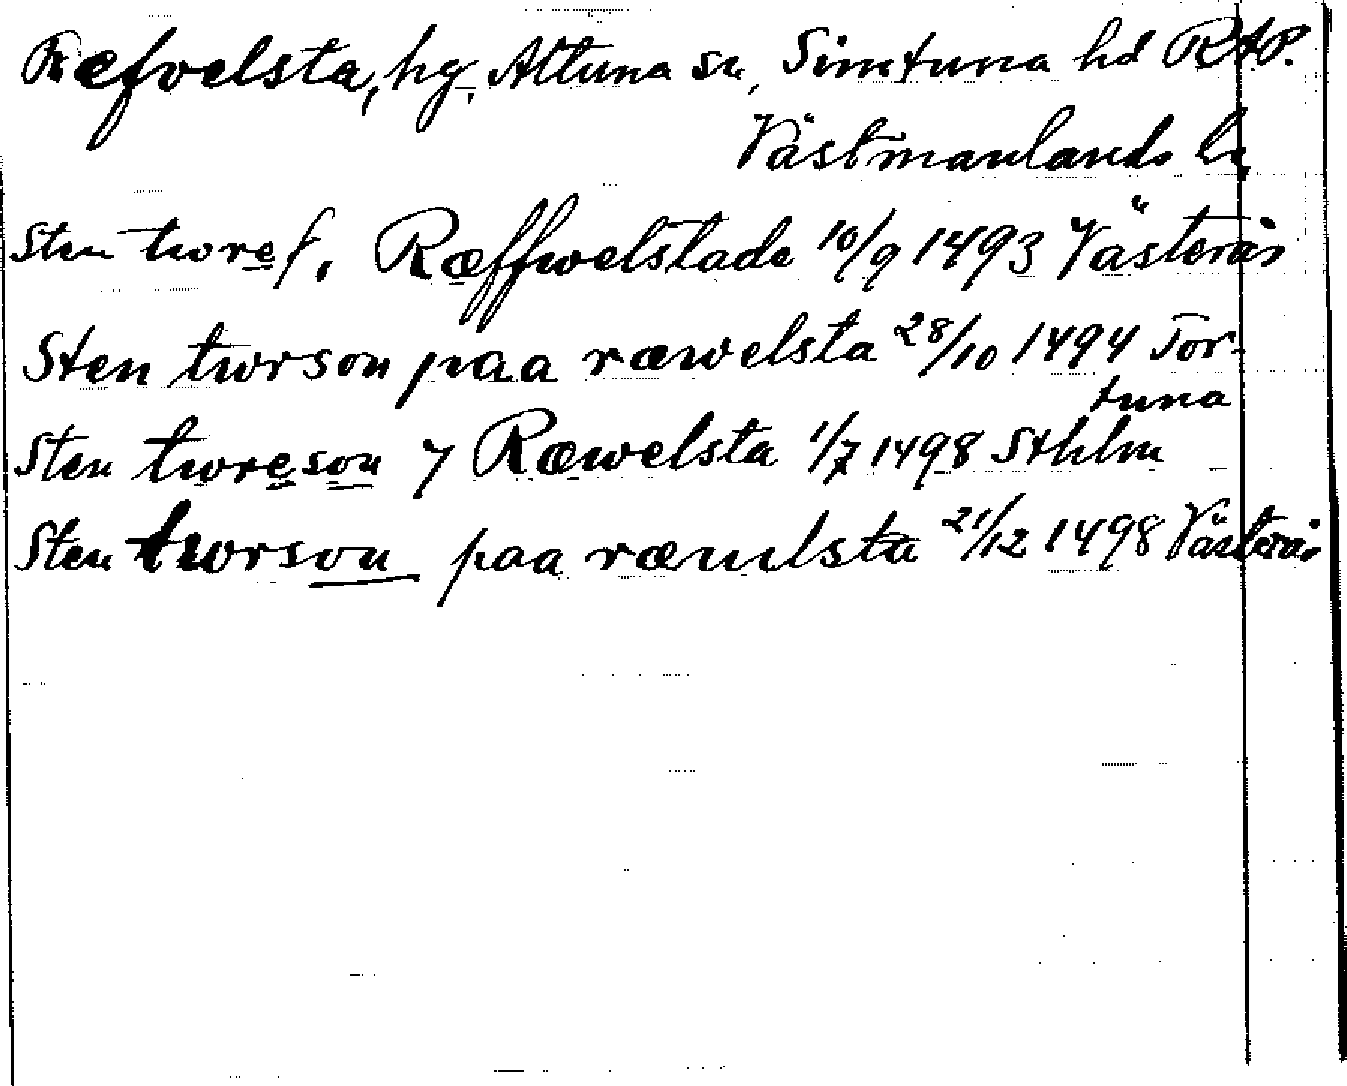 Ræfvelsta, hg, Altuna sn, Simtuna hd RAP.
Västmanlands ln
Sten twref, Ræffwelstade 10/9 1493 Västerås
Sten twrson paa ræwelsta 28/10 1494 Tor-
tuna
Sten twreson y Ræwelsta 1/7 1498 Sthlm
Sten twrson paa ræwlsta 21/12 1498 Västerås